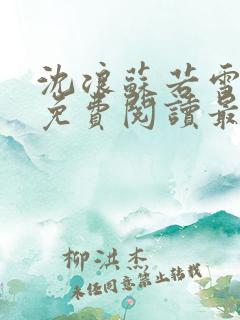 沈浪蘇若雪
免費閱讀最
柳洪杰
未经同意禁止转载